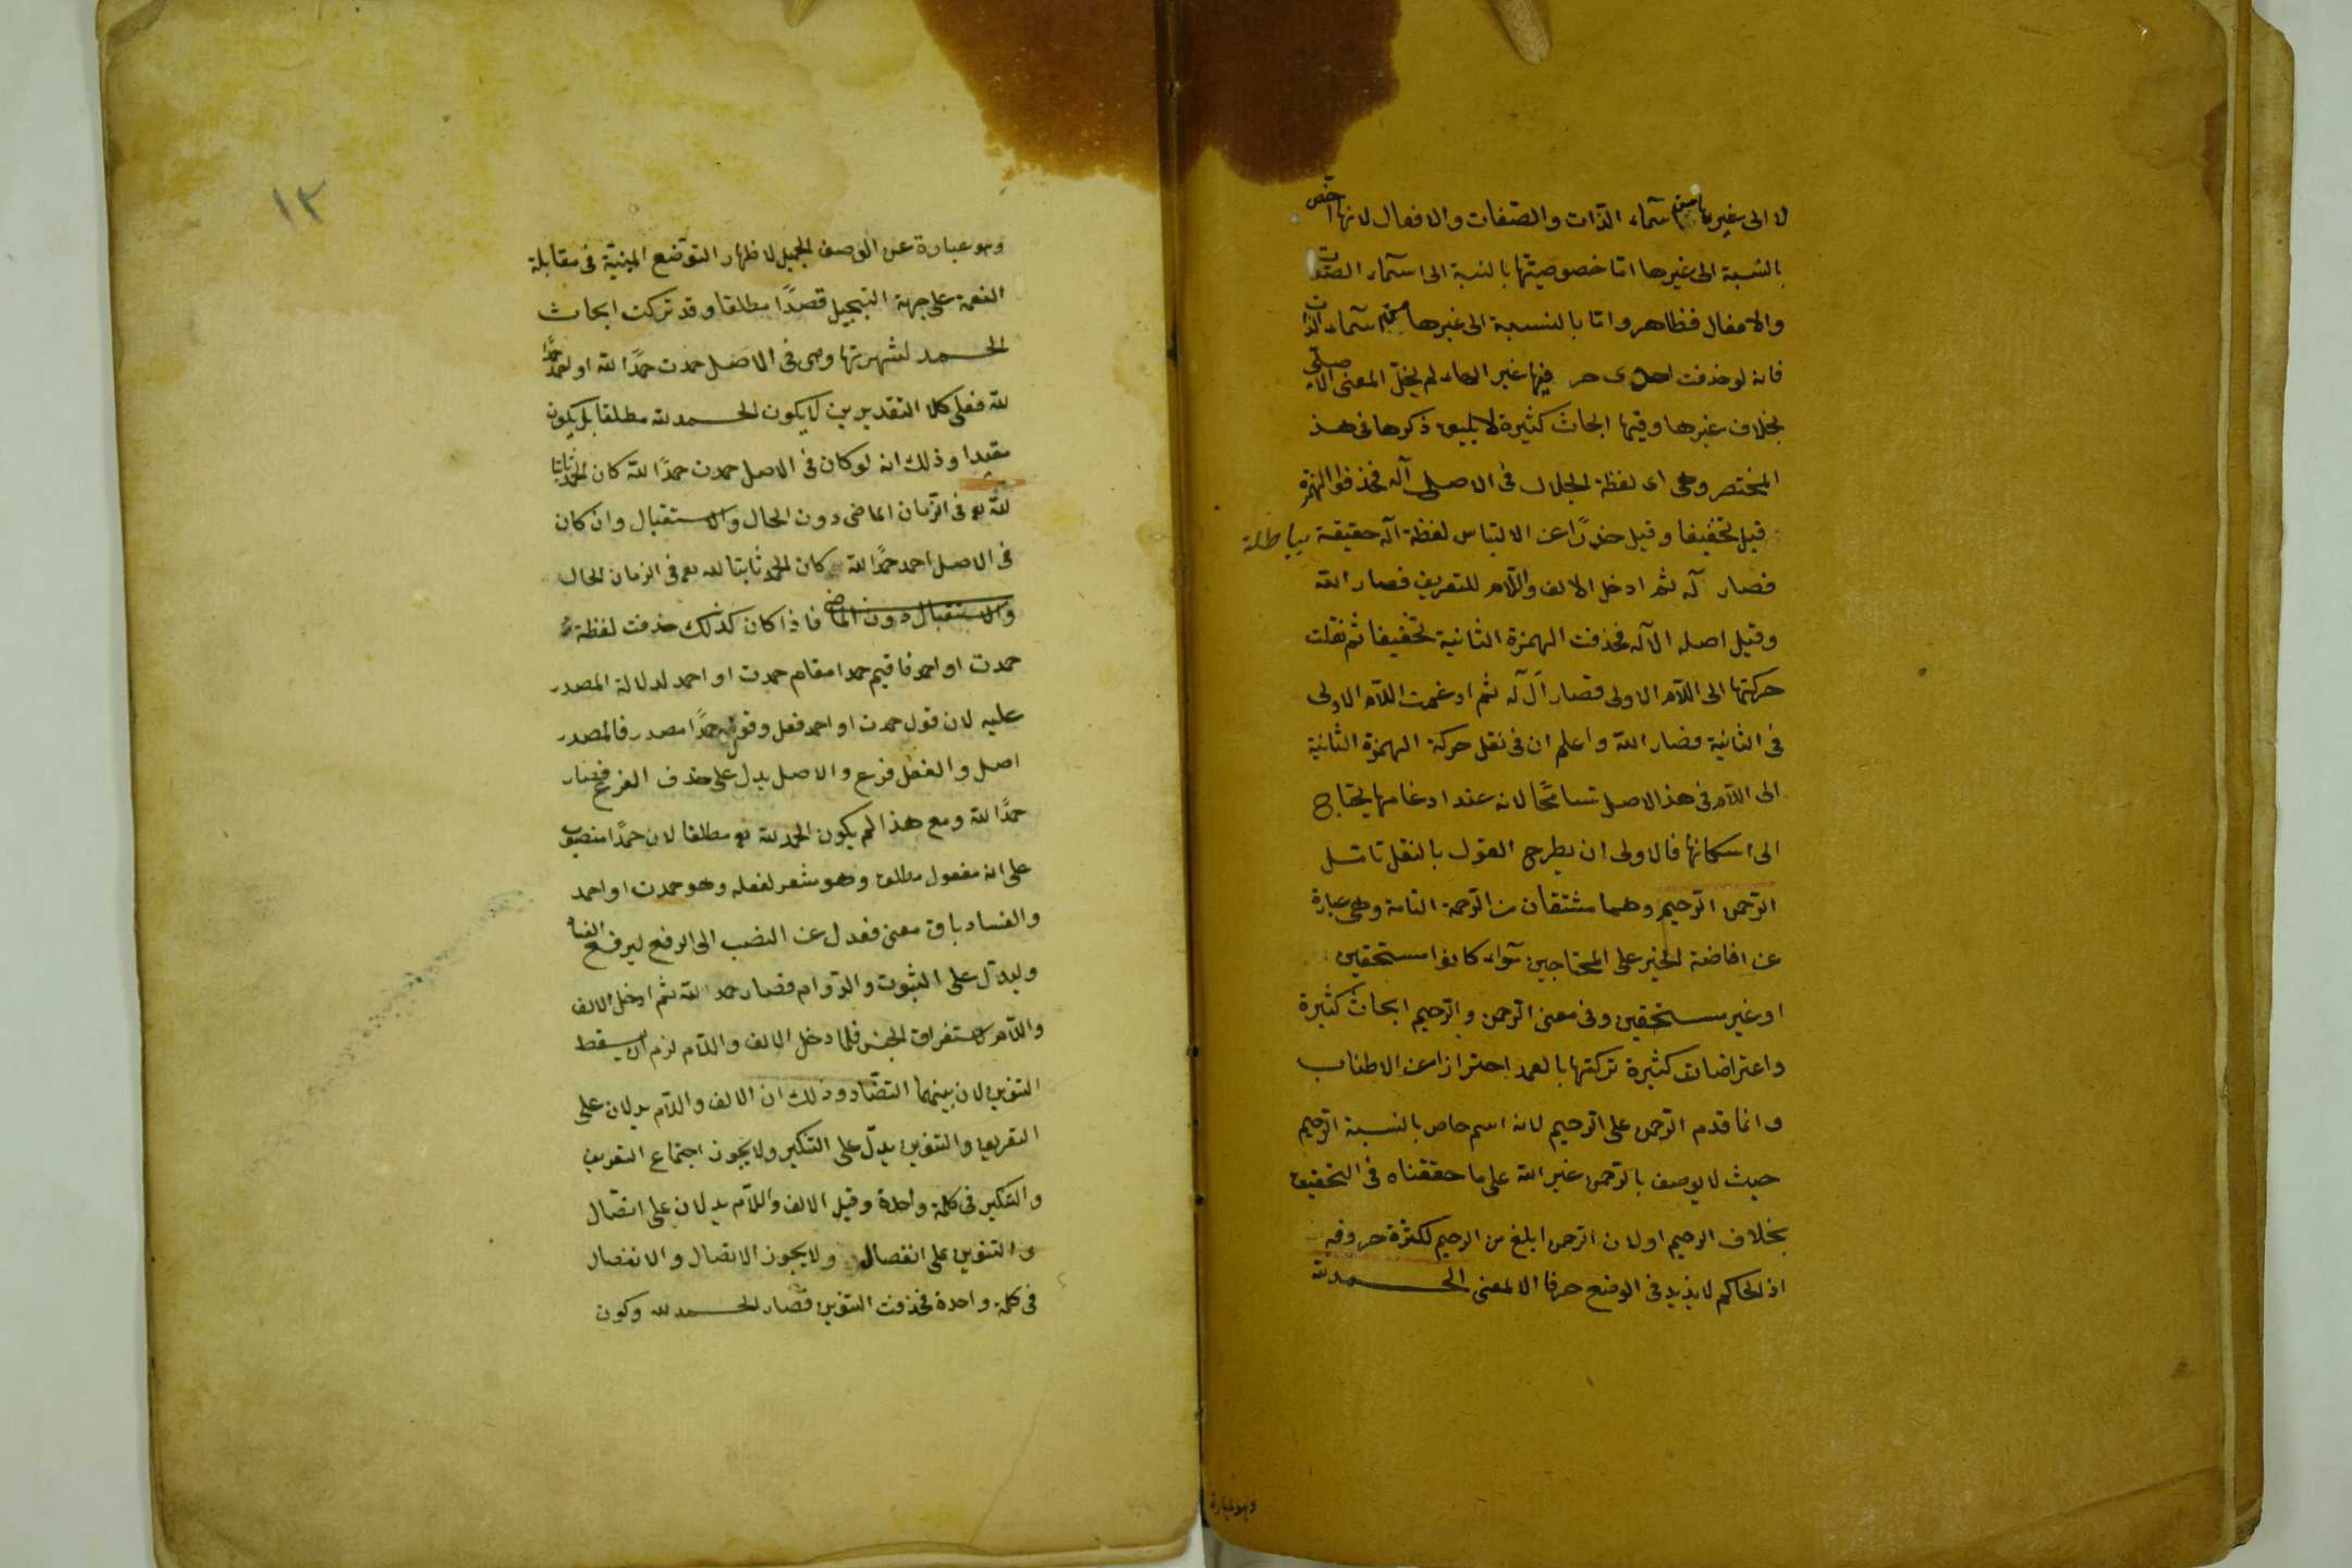 لا الى غيرها من اسماء الذات والصفات والافعال لانها اخص
بالنسبة الى غيرها اما خصوصيتها بالنسبة الى اسماء الصفات
والافعال فظاهر واما بالنسبة الى غيرها من اسماء الذات
فانه لو حذفت احدى حر فيها غير الهاء لم يخل المعنى الاصلى
بخلاف غيرها وفيها ابحاث كثيرة لا يليق ذكرها فى هذ
المختصر وهى اى لفظة الجلال فى الاصل آله فحذفوا الهمزة
قيل تخفيفا وقيل حذرًا عن الالتباس لفظة آله حقيقة بباطلة
فصار له ثم ادخل الالف واللام للتعريف فصار الله
وقيل اصله الاله فحذفت الهمزة الثانية تخفيفا ثم نقلت
حركتها الى اللام الاولى فصار اَلَ لَه ثم ادغمت اللام الاولى
فى الثانية فصار الله واعلم ان فى نقل حركة الهمزة الثانية
الى اللام فى هذ الاصل تسامحًا لانه عند ادغامها يحتاج
الى اسكانها فالاولى ان يطرح القول بالنقل تامل
الرحمن الرحيم وهما مشتقان من الرحمة التامة وهى عبارة
عن افاضة الخير على المحتاجين سواء كانوا مستحقين
او غير مستحقين وفى معنى الرحمن والرحيم ابحاث كثيرة
واعتراضات كثيرة تركتها بالعمد احترازا عن الاطناب
وانما قدم الرحمن على الرحيم لانه اسم خاص بالنسبة الرحيم
حيث لا يوصف بالرحمن غير الله على ما حققناه فى التحقيق
بخلاف الرحيم او لان الرحمن ابلغ من الرحيم لكثرة حروفه
اذ الحاكم لا يزيد فى الوضع حرفا الا لمعنى الحمد لله
وهو عبارة
١٣
وهو عبارة عن الوصف الجميل لاظهار التوضع فى مقابلة
النعمة على جهة التبجيل قصدًا مطلقا وقد تركت ابحاث
الحمد لشهرتها وهى فى الاصل حمدت حمدًا لله او احمد حمدًا
لله فعلى كلا التقديرين لا يكون الحمد لله مطلقا بل يكون
مقيدا وذلك انه لو كان فى الاصل حمدت حمدًا لله كان الحمد ثابتا
لله تع فى الزمان الماضى دون الحال والاستقبال وان كان
فى الاصل احمد حمدًا لله كان الحمد ثابتا لله تع فى الزمان الحال
والاستقبال دون الماضى فاذا كان كذلك حذفت لفظة
حمدت او احمد فاقيم حمدا مقام حمدت او احمد لدلالة المصدر
عليه لان قول حمدت او احمد فعل وقوله حمدًا مصدر فالمصدر
اصل والفعل فرع والاصل يدل على حذف الفرع فصار
حمدًا لله ومع هذا لم يكون الحمد لله تع مطلقا لان حمدًا منصوب
على انه مفعول مطلق وهو مشعر لفعله وهو حمدت او احمد
والفساد باق معنى فعدل عن النصب الى الرفع ليرفع الفساد
وليدل على الثبوت والدوام فصار حمد لله ثم ادخل الالف
واللام لاستغراق الجنس فلما دخل الالف واللام لزم ان يسقط
التنوين لان بينهما التضاد وذلك ان الالف واللام يدلان على
التعريف والتنوين يدل على التنكير ولا يجوز اجتماع التعريف
والتنكير فى كلمة واحدة وقيل الالف واللام يدلان على اتصال
والتنوين على انفصال ولا يجوز الاتصال والانفصال
فى كلمة واحدة فحذفت التنوين فصار الحمد لله وكون